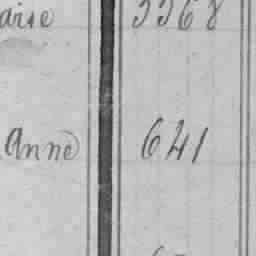 aise 3368
Anne 641